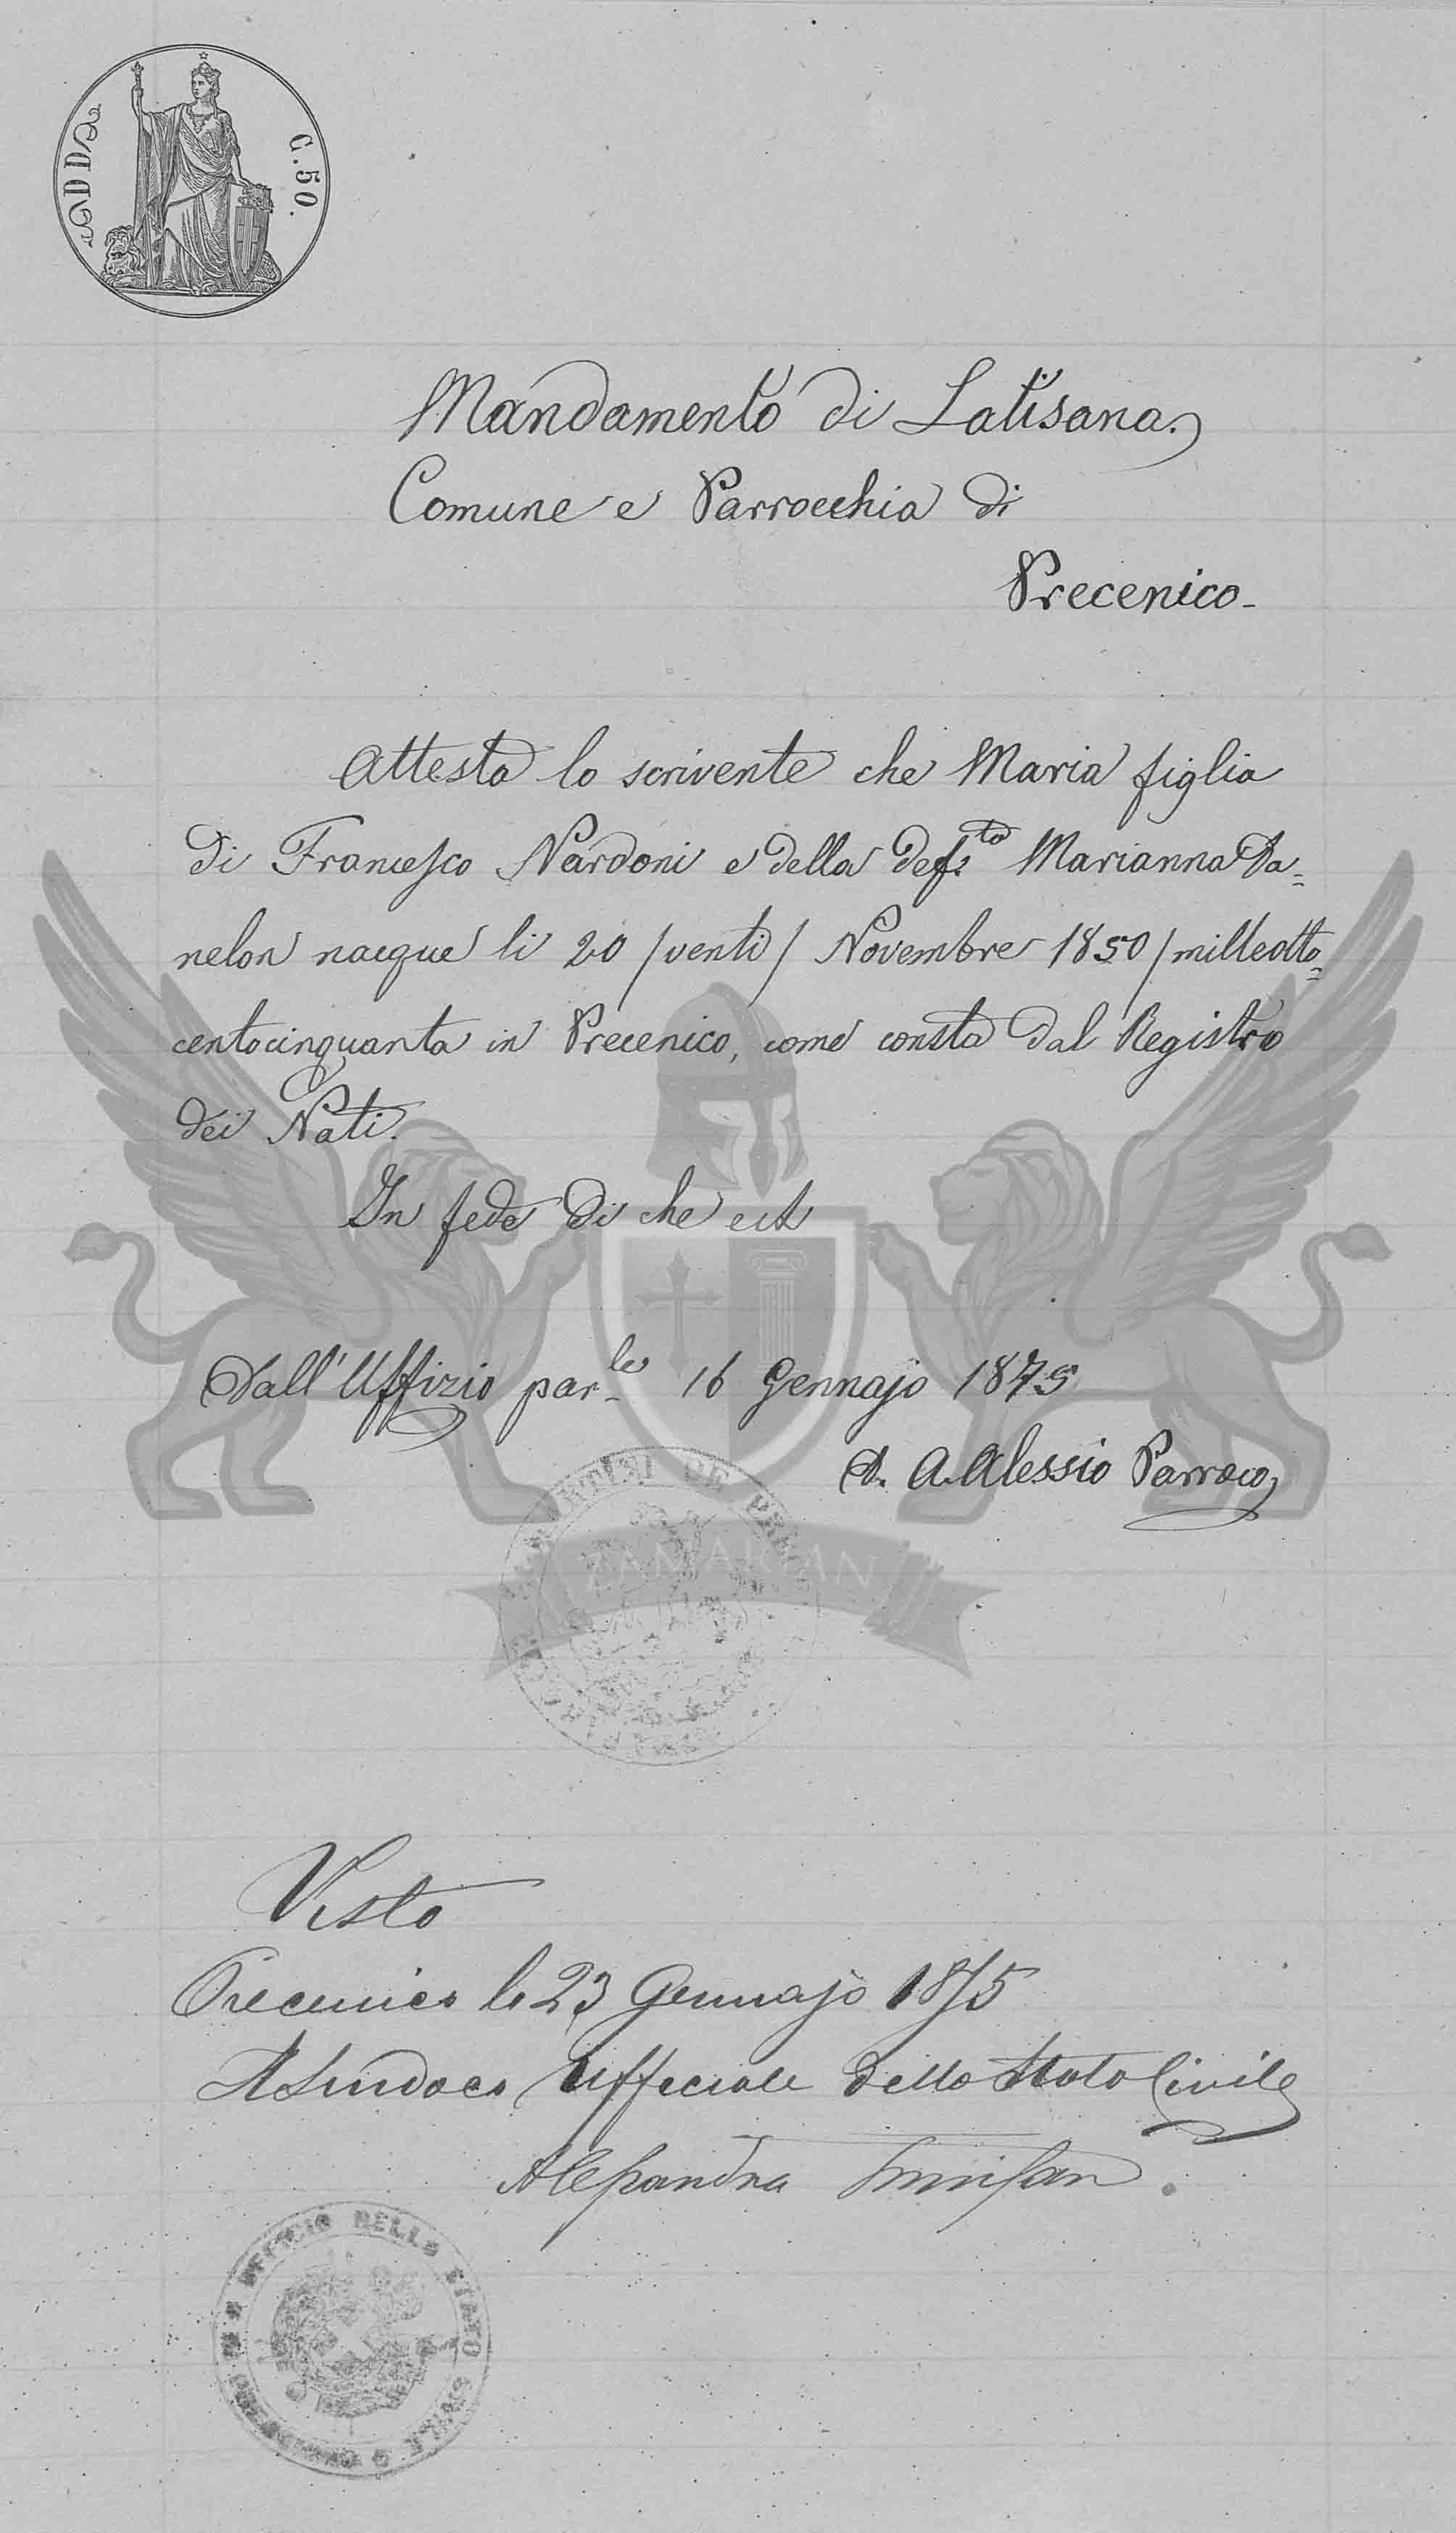 C.50.
Mandamento di Latisana.
Comune e Parrocchia di
Precenico-
Attesta lo scrivente che Maria figlia
di Francesco Nardoni e della def.ta Marianna Da=
nelon nacque li 20 /venti/ Novembre 1850 /milleotto=
centocinquanta in Precenico, come consta dal Registro
dei Nati.
In fede di che ect
Dall'Uffizio par.le 16 Gennajo 1875
D. A. Alessio Parroco
ZAMARIAN
Visto
Precenico li 23 Gennajo 1875
Il Sindaco Ufficiale dello Stato Civile
UFFICIO DELLO STATO CIVILE